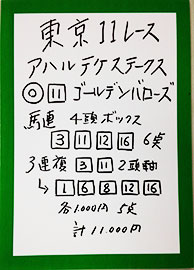 東京11レース
アハルテケステークス
◎ 11 ゴールデンバローズ
馬連 4頭ボックス
3 11 12 16 6点
3連複 3 11 2頭軸
↳ 1 6 8 12 16
各1.000円 5点
計11.000円